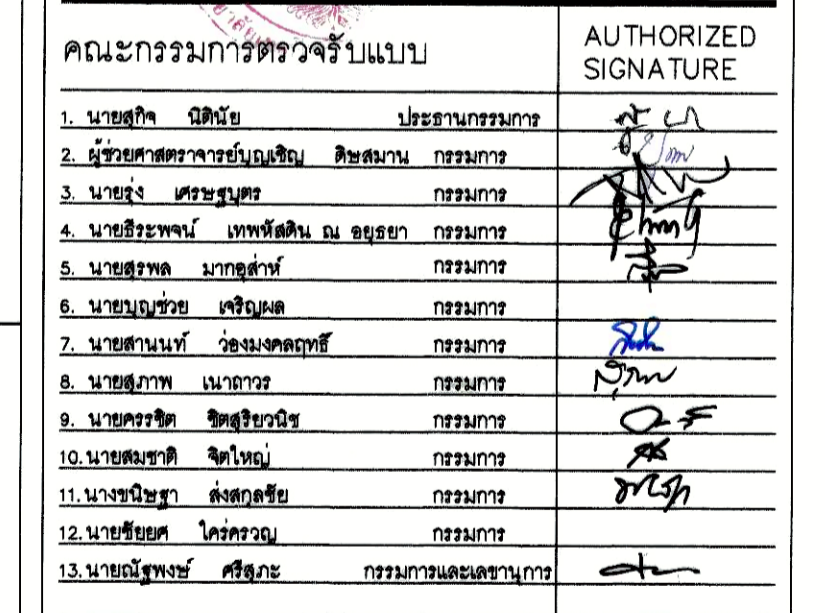 คณะกรรมการตรวจรับแบบ
AUTHORIZED
SIGNATURE
1. นายสุกิจ นิตินัย ประธานกรรมการ
2. ผู้ช่วยศาสตราจารย์บุญเชิญ ดิษสมาน กรรมการ
3. นายรุ่ง เศรษฐบุตร กรรมการ
4. นายธีระพจน์ เทพหัสดิน ณ อยุธยา กรรมการ
5. นายสุรพล มากอุส่าห์ กรรมการ
6. นายบุญช่วย เจริญผล กรรมการ
7. นายสานนท์ ว่องมงคลฤทธิ์ กรรมการ
8. นายสุภาพ เนาถาวร กรรมการ
9. นายครรชิต ชิตสุริยวนิช กรรมการ
10. นายสมชาติ จิตใหญ่ กรรมการ
11. นางขนิษฐา ส่งสกุลชัย กรรมการ
12. นายชัยยศ ใคร่ครวญ กรรมการ
13. นายณัฐพงษ์ ศรีสุภะ กรรมการและเลขานุการ